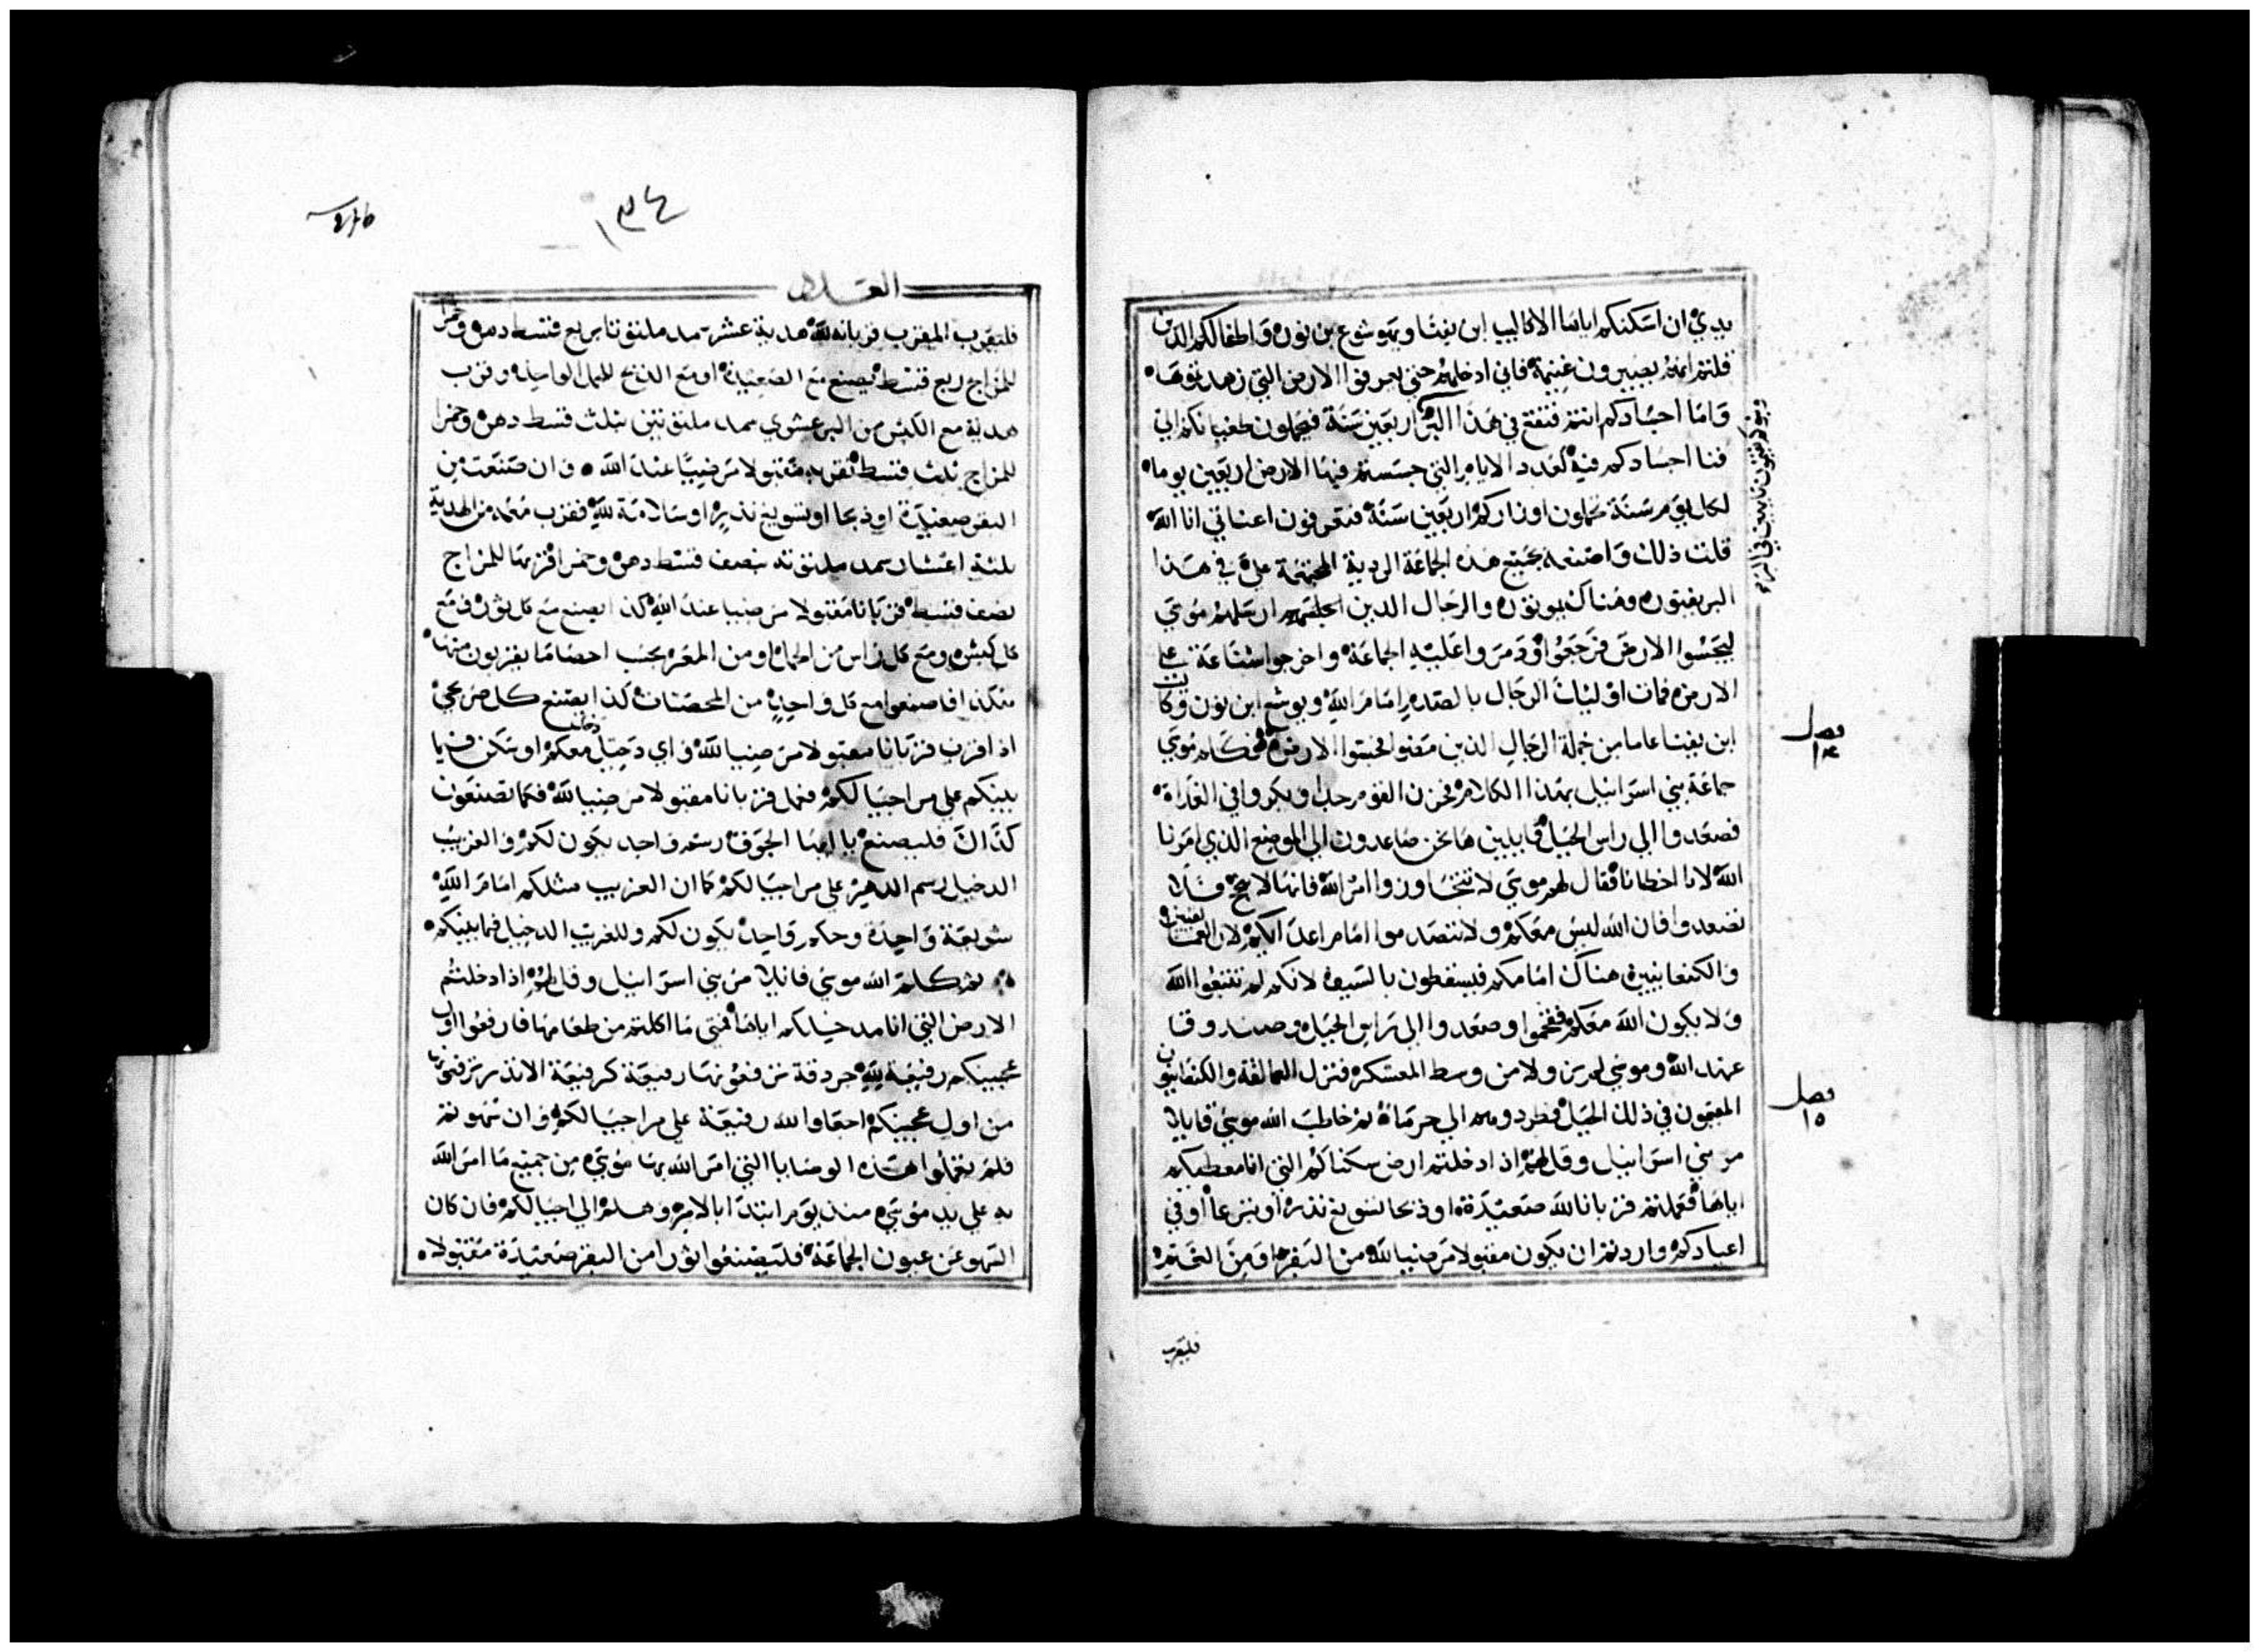 يدي ان اسكنكم اياها الا كاليب ابن يفنا ويهوشوع بن نون واطفالكم الذين
قلتم انهم يصيرون غنيمة فاني ادخلهم حتي يعرفوا الارض التي زهدتموها
واما اجسادكم انتم فتقع في هذا البر اربعين سنة فيحملون طغيانكم الي
فنا اجسادكم فيه كعدد الايام التي جسستم فيها الارض اربعين يوما
لكل يوم سنة تحملون اوزاركم اربعين سنة فتعرفون اني انا الله
قلت ذلك واصنعه بجميع هذه الجماعة الردية المجتمعة علي في هذا
البر يفنون وهناك يموتون والرجال الذين ارسلهم موسي
ليجسوا الارض فرجعوا وذمروا عليه الجماعة واخرجوا شناعة علي
الارض فمات اوليك الرجال بالصدم امام الله ويوشع ابن نون وكالب
ابن يفنا عاشا من جملة الرجال الذين مضوا ليجسوا الارض فكلم موسي
جماعة بني اسراييل بهذا الكلام فحزن القوم جدا وبكروا في الغداة
فصعدوا الي راس الجبل قايلين ها نحن صاعدون الي الموضع الذي امرنا
الله لانا اخطانا فقال لهم موسي لا تتجاوزوا امر الله فانها لا تنجح فلا
تصعدوا فان الله ليس معكم ولا تنصدموا امام اعدايكم لان العمالقيين
والكنعانيين هناك امامكم فيسقطون بالسيف لانكم لم تتبعوا الله
ولا يكون الله معكم فتقحموا وصعدوا الي راس الجبل وصندوق
عهد الله وموسي لم يزولا من وسط المعسكر فنزل العمالقة والكنعانيون
المقيمون في ذلك الجبل فطردوهم الي حرماة ثم خاطب الله موسي قايلا
مر بني اسراييل وقل لهم اذا دخلتم ارض سكناكم التي انا معطيكم
اياها فعملتم قربانا لله صعيدة او ذبحا لتسويغ نذر او تبرعا او في
اعيادكم واردتم ان يكون مقبولا مرضيا لله من البقر او من الغنم
فليقرب
فصل
١٤
فصل
١٥
١٣٤
العدد
فليقرب المقرب قربانه لله هدية عشر سمد ملتوتا بربع قسط دهن وخمرا
للمزاج ربع قسط يصنع مع الصعيدة او مع الذبح للحمل الواحد وقرب
هدية مع الكبش من البر عشري سمد ملتوتين بثلث قسط دهن وخمرا
للمزاج ثلث قسط تقربه مقبولا مرضيا عند الله وان صنعت من
البقر صعيدة او ذبحا او تسويغ نذر او سلامة لله فقرب معه من الهدية
ثلثة اعشار سمد ملتوتة بنصف قسط دهن وخمرا قربها للمزاج
نصف قسط قربانا مقبولا مرضيا عند الله كذا يصنع مع كل ثور ومع
كل كبش ومع كل راس من الحملان ومن المعز بحسب احصا ما يقربون منها
هكذا فاصنعوا مع كل واحد من المحصنات كذا يصنع كل صريحي
اذا قرب قربانا مقبولا مرضيا لله واي دخيل دخل معكم او سكن فيما
بينكم علي مر اجيالكم فعمل قربانا مقبولا مرضيا لله فكما تصنعون
كذاك فليصنع يا ايها الجوقة رسم واحد يكون لكم والغريب
الدخيل رسم الدهر علي مر اجيالكم كما ان الغريب مثلكم امام الله
شريعة واحدة وحكم واحد يكون لكم وللغريب الدخيل فيما بينكم
ثم كلم الله موسي قايلا مر بني اسراييل وقل لهم اذا دخلتم
الارض التي انا مدخلكم اياها فمتي ما اكلتم من طعامها فارفعوا اول
عجينكم رفيعة لله جردقة ترفعونها رفيعة كرفيعة الاندر ترفعون
من اول عجينكم اعطوا لله رفيعة علي مر اجيالكم وان سهوتم
فلم تعملوا هذه الوصايا التي امر الله بها موسي من جميع ما امر الله
به علي يد موسي منذ يوم ابتدا بالامر وهلم الي اجيالكم فان كان
السهو عن عيون الجماعة فليصنعوا ثورا من البقر صعيدة مقبولا